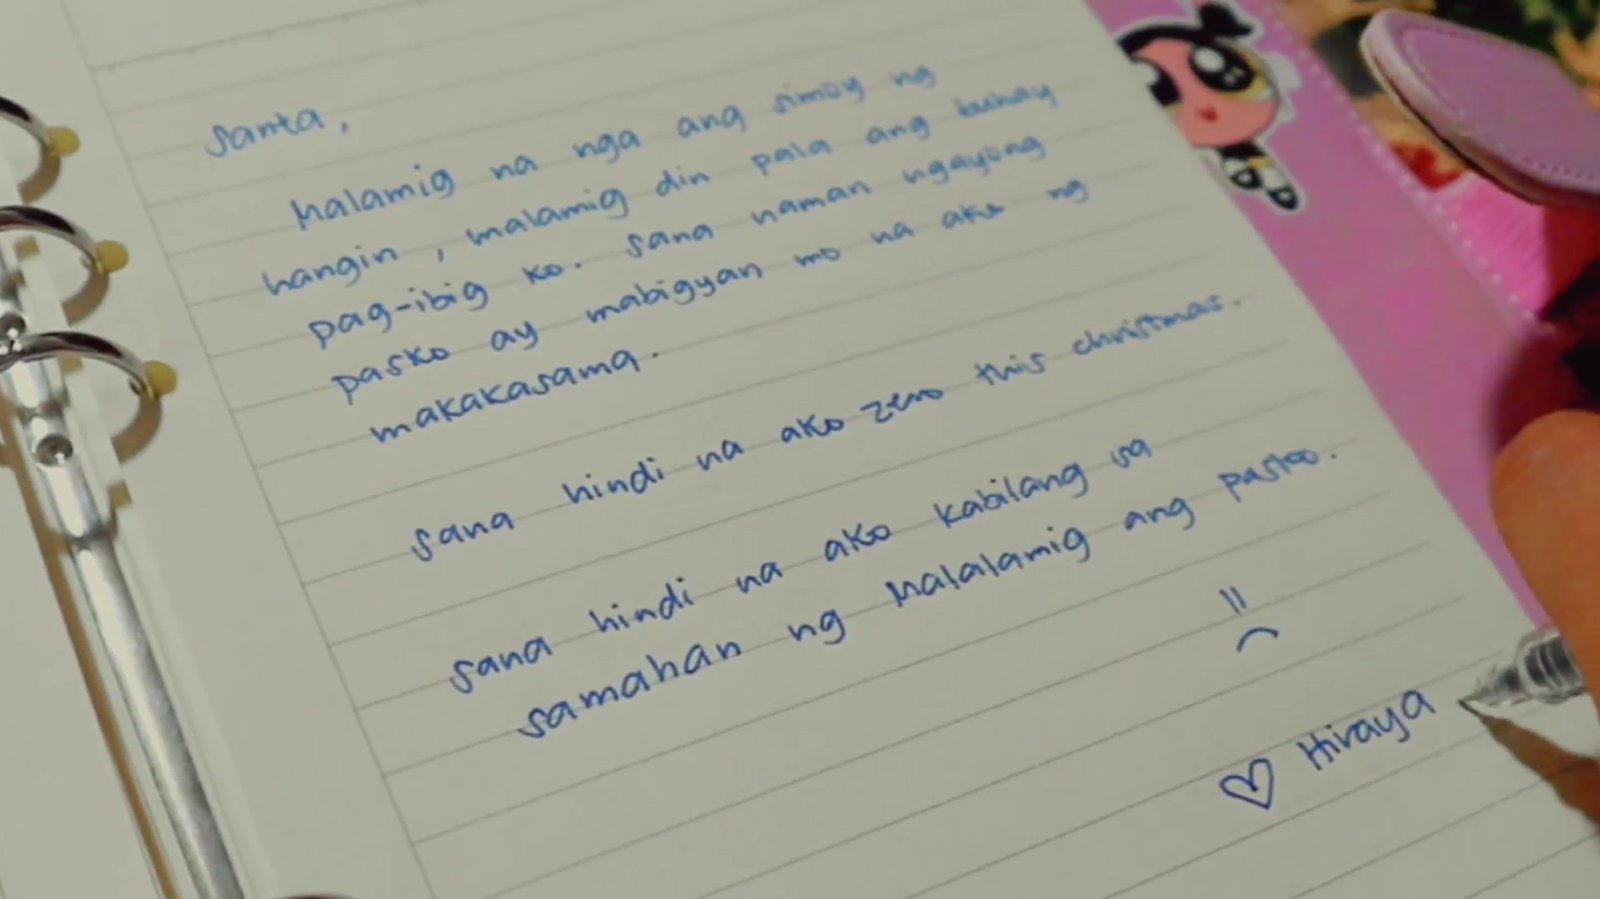 Santa,
Malamig na nga ang simoy ng
hangin, malamig din pala ang buhay
pag-ibig ko. Sana naman ngayong
pasko ay mabigyan mo na ako ng
makakasama.
Sana hindi na ako zero this christmas.
Sana hindi na ako kabilang sa
samahan ng Malalamig ang pasko.
Hiraya